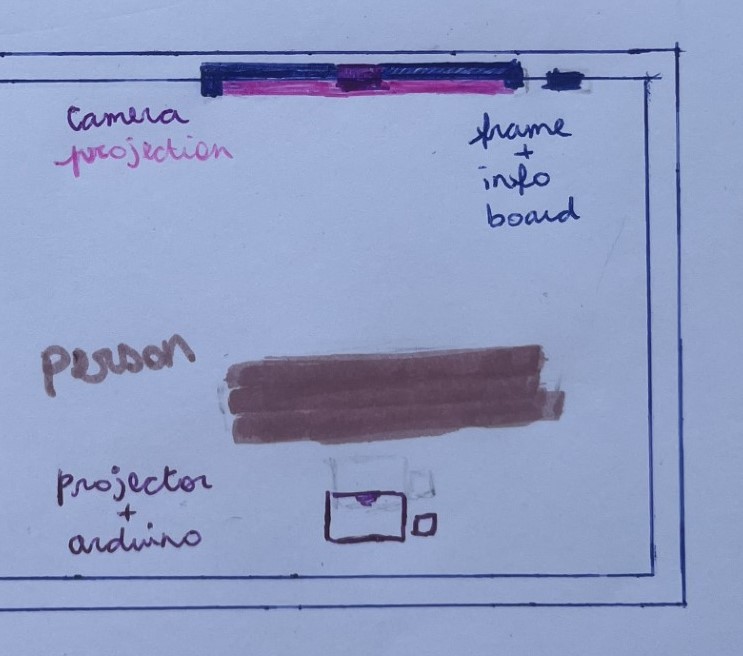 Camera
projection
frame
+
info
board
person
projector
+
arduino